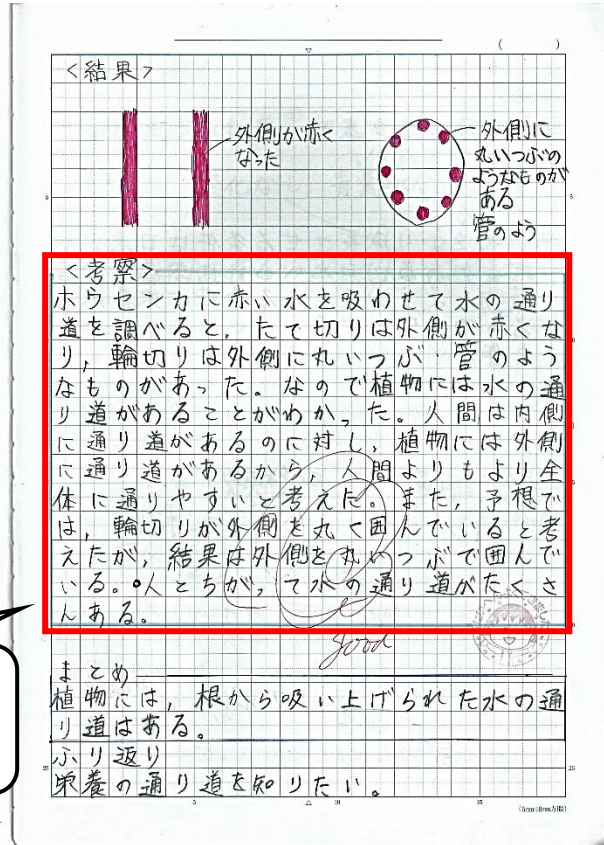 (　　)
<結果>
外側が赤く
なった
外側に
丸いつぶの
ようなものが
ある
管のよう
<考察>
ホウセンカに赤い水を吸わせて水の通り
道を調べると，たて切りは外側が赤くな
り，輪切りは外側に丸いつぶ・管のよう
なものがあった。なので植物には水の通
り道があることがわかった。人間は内側
に通り道があるのに対し，植物には外側
に通り道があるから，人間よりもより全
体に通りやすいと考えた。また，予想で
は，輪切りが外側を丸く囲んでいると考
えたが，結果は外側を丸いつぶで囲んで
いる。人とちがって水の通り道がたくさ
んある。
good
まとめ
植物には，根から吸い上げられた水の通
り道はある。
ふり返り
栄養の通り道を知りたい。
5
10
15
(5mm10mm方眼)